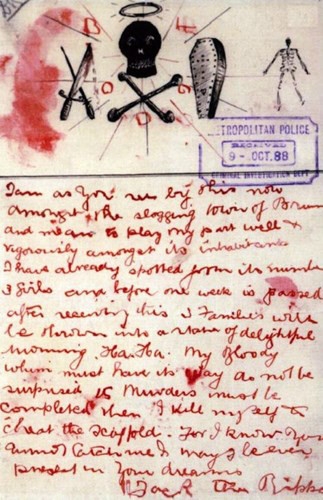 METROPOLITAN POLICE
RECEIVED
9 - OCT. 88
CRIMINAL INVESTIGATION DEPT
I am as you see by this now
amongst the slogging town of Brum
and mean to play my part well &
vigorously amongst its inhabitants
I have already spotted from its number
3 girls and before one week is passed
after receiving this 3 Families will
be thrown into a state of delightful
mourning. Ha. Ha. My Bloody
whim must have its way do not be
surprised 15 Murders must be
completed then I kill myself to
cheat the scaffold. For I know you
cannot catch me & I may be ever
present in your dreams
Jack the Ripper